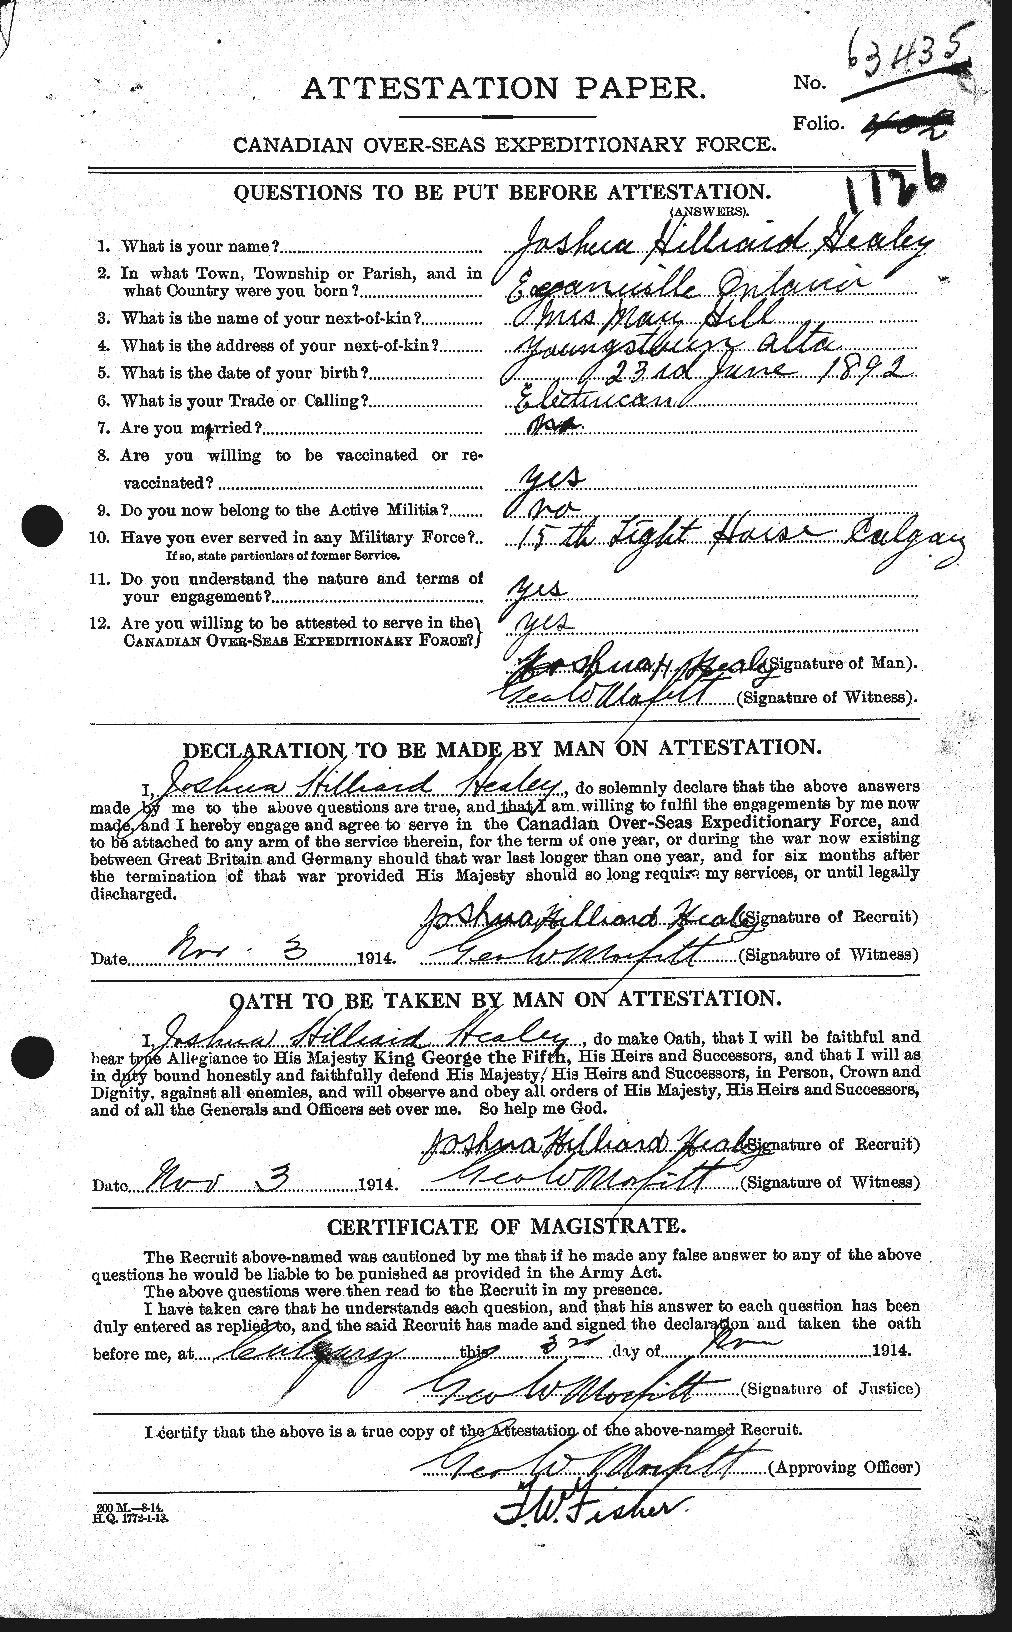 No. 63435
ATTESTATION PAPER.
Folio.
CANADIAN OVER-SEAS EXPEDITIONARY FORCE.
1126
QUESTIONS TO BE PUT BEFORE ATTESTATION.
(ANSWERS).
1. What is your name? Joshua Hilliard Healey
2. In what Town, Township or Parish, and in
what Country were you born? Eganville Ontario
3. What is the name of your next-of-kin? Mrs Mary Hill
4. What is the address of your next-of-kin? Youngstown Alta
5. What is the date of your birth? 23rd June 1892
6. What is your Trade or Calling? Electrican
7. Are you married? no
8. Are you willing to be vaccinated or re-
vaccinated? yes
9. Do you now belong to the Active Militia? no
10. Have you ever served in any Military Force? 15th Light Horse Calgary
If so, state particulars of former Service.
11. Do you understand the nature and terms of
your engagement? yes
12. Are you willing to be attested to serve in the
CANADIAN OVER-SEAS EXPEDITIONARY FORCE? yes
Joshua H. Healy (Signature of Man).
Geo W Morfitt (Signature of Witness).
DECLARATION TO BE MADE BY MAN ON ATTESTATION.
I, Joshua Hilliard Healey, do solemnly declare that the above answers
made by me to the above questions are true, and that I am willing to fulfil the engagements by me now
made, and I hereby engage and agree to serve in the Canadian Over-Seas Expeditionary Force, and
to be attached to any arm of the service therein, for the term of one year, or during the war now existing
between Great Britain and Germany should that war last longer than one year, and for six months after
the termination of that war provided His Majesty should so long require my services, or until legally
discharged.
Joshua Hilliard Healy (Signature of Recruit)
Date Nov. 3 1914. Geo W Morfitt (Signature of Witness)
OATH TO BE TAKEN BY MAN ON ATTESTATION.
I, Joshua Hilliard Healey, do make Oath, that I will be faithful and
bear true Allegiance to His Majesty King George the Fifth, His Heirs and Successors, and that I will as
in duty bound honestly and faithfully defend His Majesty, His Heirs and Successors, in Person, Crown and
Dignity, against all enemies, and will observe and obey all orders of His Majesty, His Heirs and Successors,
and of all the Generals and Officers set over me. So help me God.
Joshua Hilliard Healy (Signature of Recruit)
Date Nov 3 1914. Geo W Morfitt (Signature of Witness)
CERTIFICATE OF MAGISTRATE.
The Recruit above-named was cautioned by me that if he made any false answer to any of the above
questions he would be liable to be punished as provided in the Army Act.
The above questions were then read to the Recruit in my presence.
I have taken care that he understands each question, and that his answer to each question has been
duly entered as replied to, and the said Recruit has made and signed the declaration and taken the oath
before me, at Calgary this 3rd day of Nov 1914.
Geo W Morfitt (Signature of Justice)
I certify that the above is a true copy of the Attestation of the above-named Recruit.
Geo W Morfitt (Approving Officer)
200 M.—8-14.
H.Q. 1772-1-13.
F.W. Fisher.